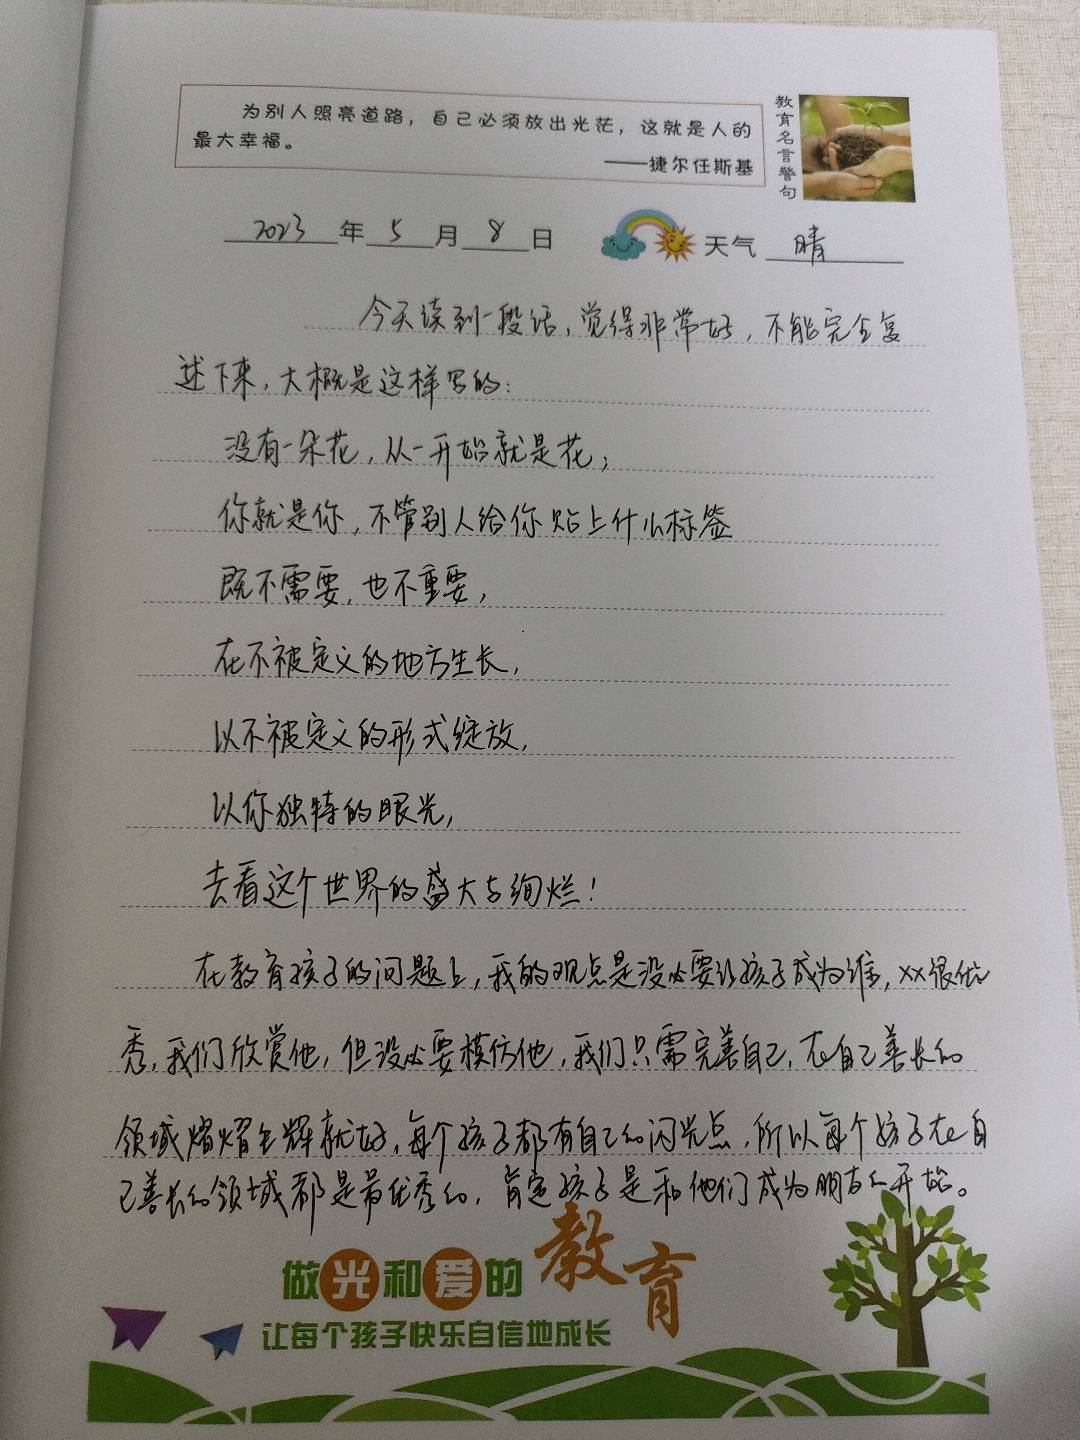 为别人照亮道路，自己必须放出光芒，这就是人的
最大幸福。
——捷尔任斯基
教育名言警句
2023年5月8日 天气 晴
今天读到一段话，觉得非常好，不能完全复
述下来，大概是这样写的：
没有一朵花，从一开始就是花；
你就是你，不管别人给你贴上什么标签
既不需要，也不重要，
在不被定义的地方生长，
以不被定义的形式绽放，
以你独特的眼光，
去看这个世界的盛大与绚烂！
在教育孩子的问题上，我的观点是没必要让孩子成为谁，××很优
秀，我们欣赏他，但没必要模仿他，我们只需完善自己，在自己善长的
领域熠熠生辉就好，每个孩子都有自己的闪光点，所以每个孩子在自
己善长的领域都是最优秀的，肯定孩子是和他们成为朋友的开始。
做光和爱的教育
让每个孩子快乐自信地成长